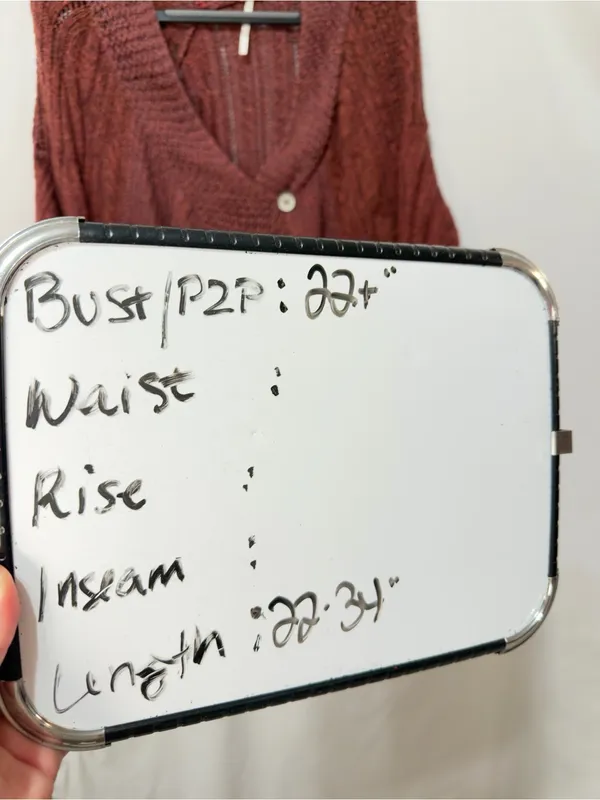 Bust/P2P : 22+"
Waist :
Rise :
Inseam :
Length : 22-34"